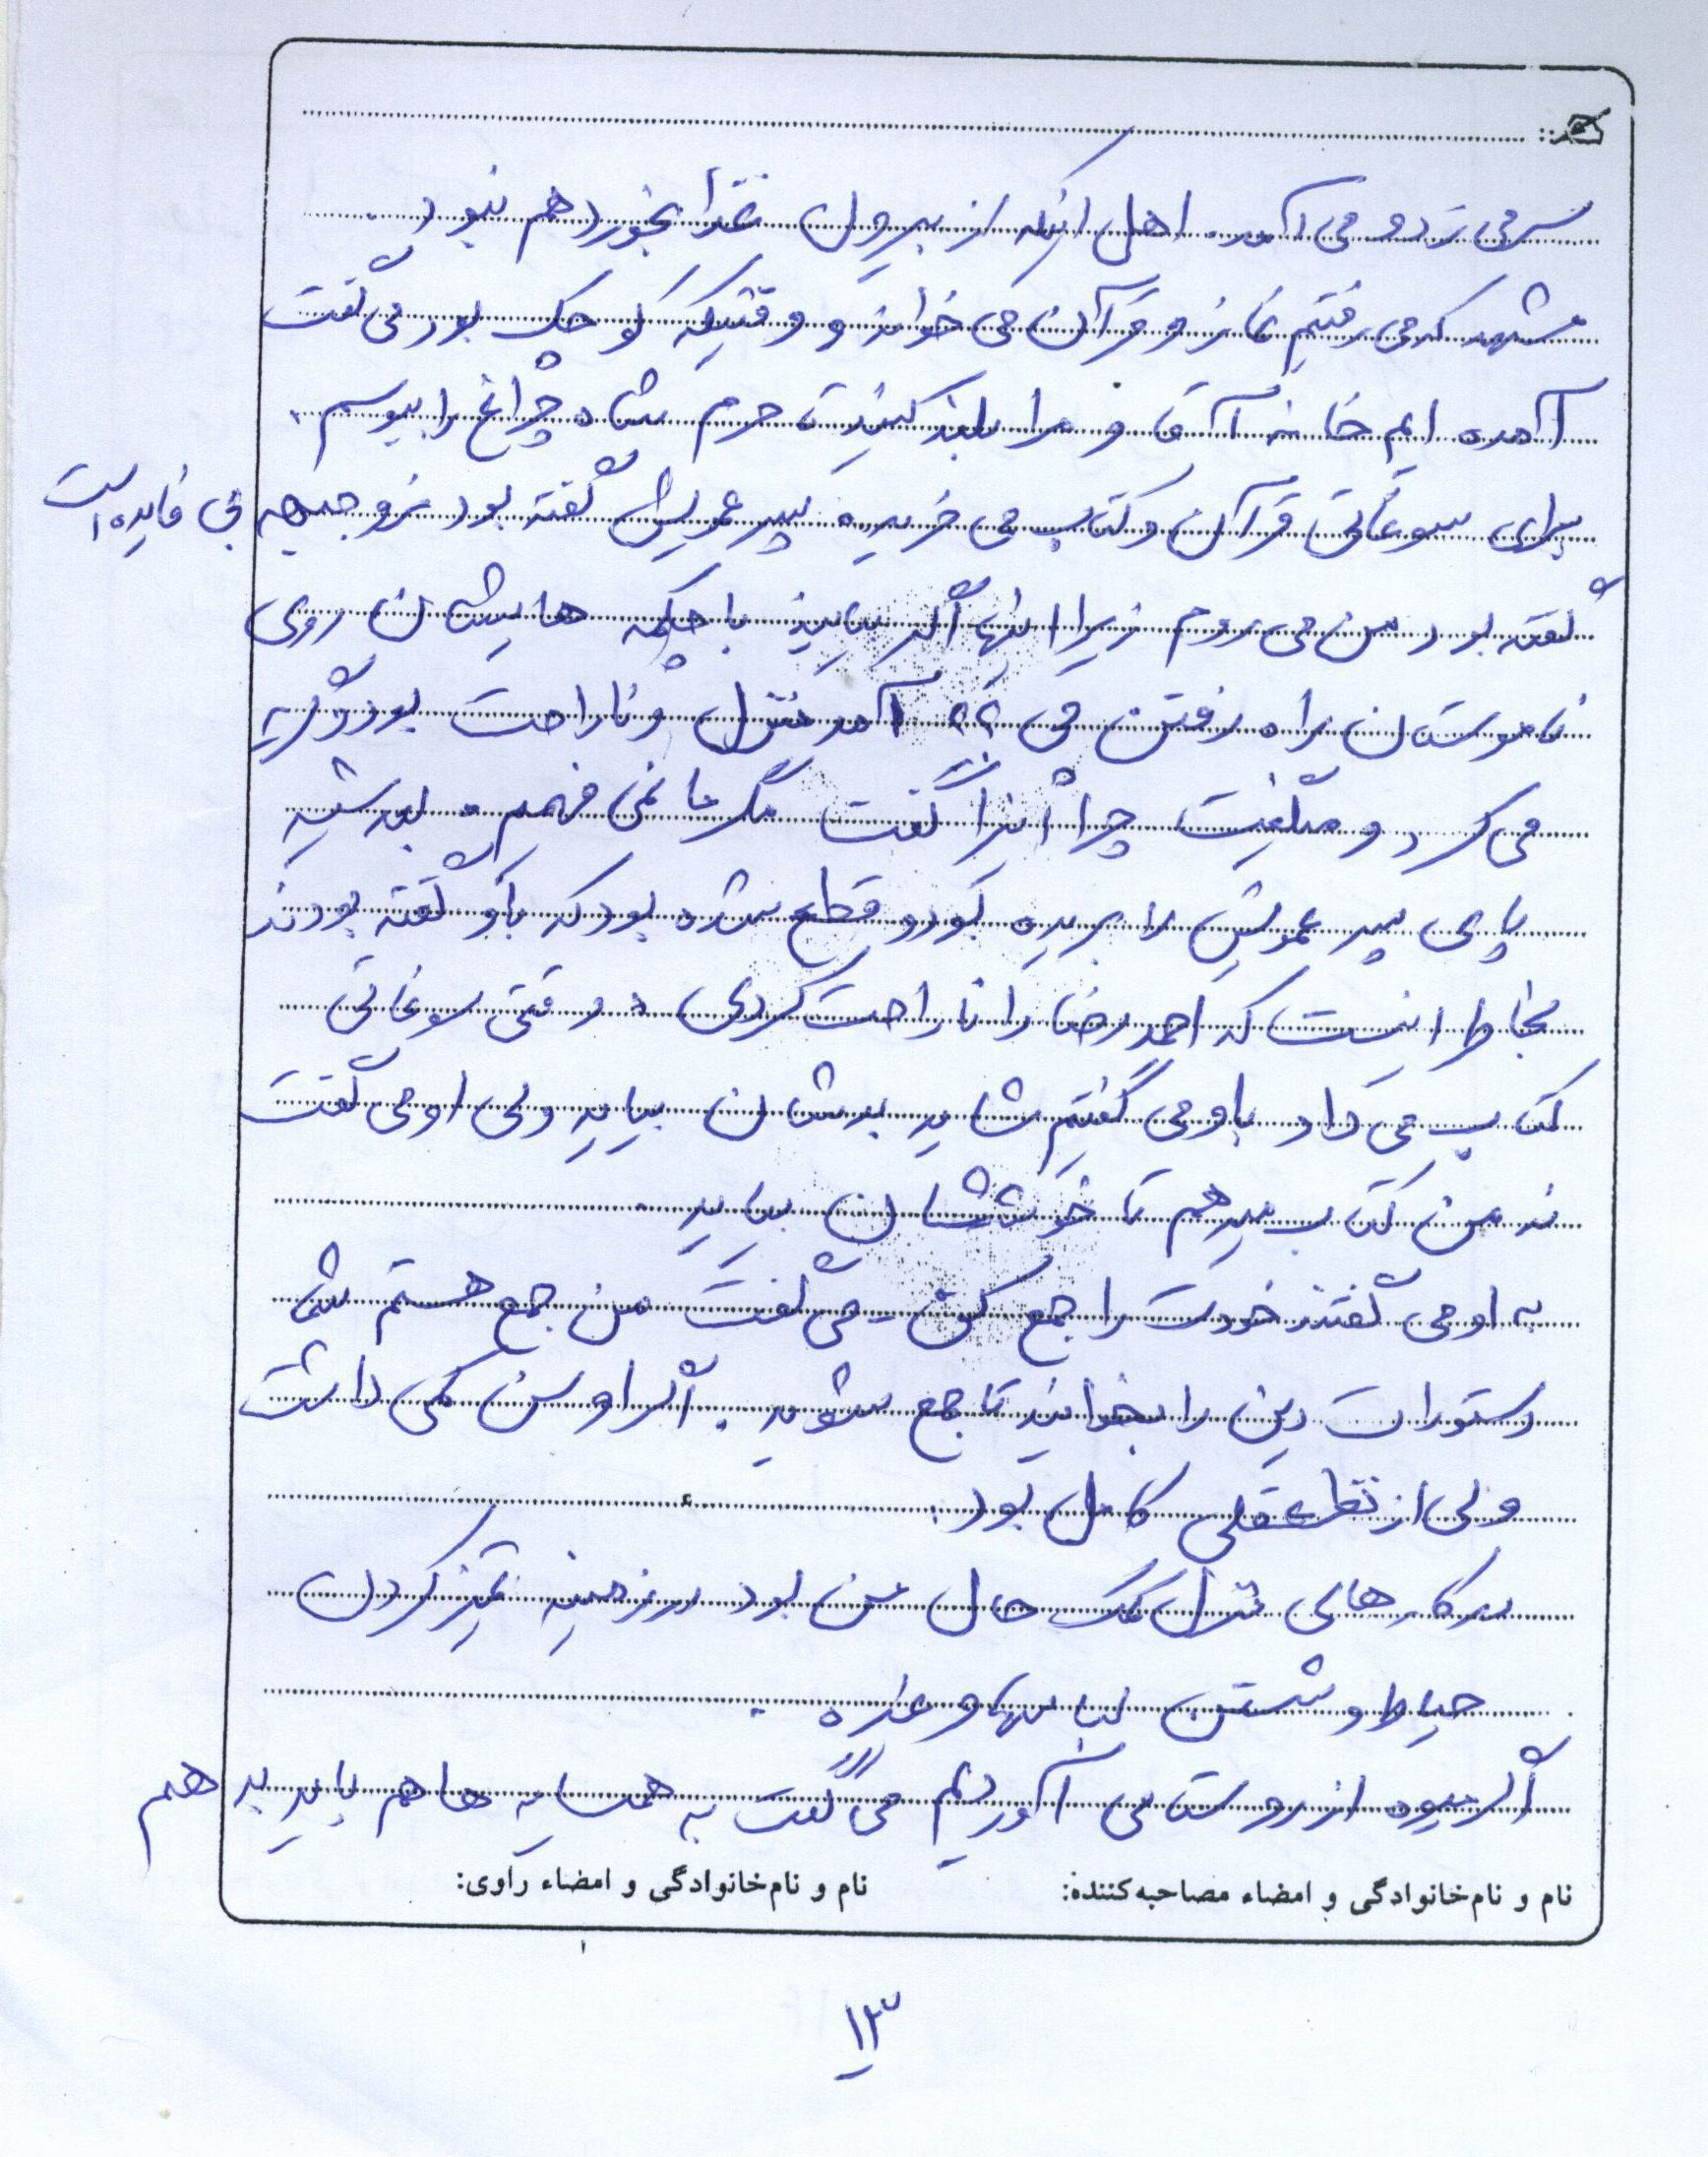 سر می زد و می آمد. اهل اینکه از بیرون غذا بخورد هم نبود.
مشهد که می رفتیم نماز و قرآن می خواند و وقتیکه کوچک بود می گفت
آمده ایم خانه آقا و مرا بلند کنید تا حرم شاه چراغ را ببوسم.
برای سوغاتی قرآن و کتاب می خرید. پسر عمویش گفته بود نرو جبهه بی فایده است
گفته بود من می روم زیرا اینها اگر بیایند با چکمه هایشان روی
ناموستان راه رفتن می آمد منزل و ناراحت بود و گریه
می کرد و میگفت چرا اینرا گفت مگر ما نمی فهمیم. بعد
پای پسر عمویش را بریده بود و قطع شده بود که باو گفته بودند
بخاطر اینست که احمدرضا را ناراحت کردی. و وقتی سوغاتی
کتاب می داد باو می گفتیم شاید بدشان بیاید ولی او می گفت
نه من کتاب میدهم تا خوششان بیاید.
به او می گفتند خودت را جمع کن - می گفت من جمع هستم شما
دستورات دین را بخوانید تا جمع شوید. اگر او سن کمی داشت
ولی از نظر عقلی کامل بود.
در کارهای منزل کمک حال من بود در زمینه تمیز کردن
حیاط و شستن لباسها و غیره.
اگر میوه از روستا می آوردیم می گفت به همسایه ها هم باید بدهم
نام و نام‌خانوادگی و امضاء مصاحبه‌کننده: نام و نام‌خانوادگی و امضاء راوی:
۱۳